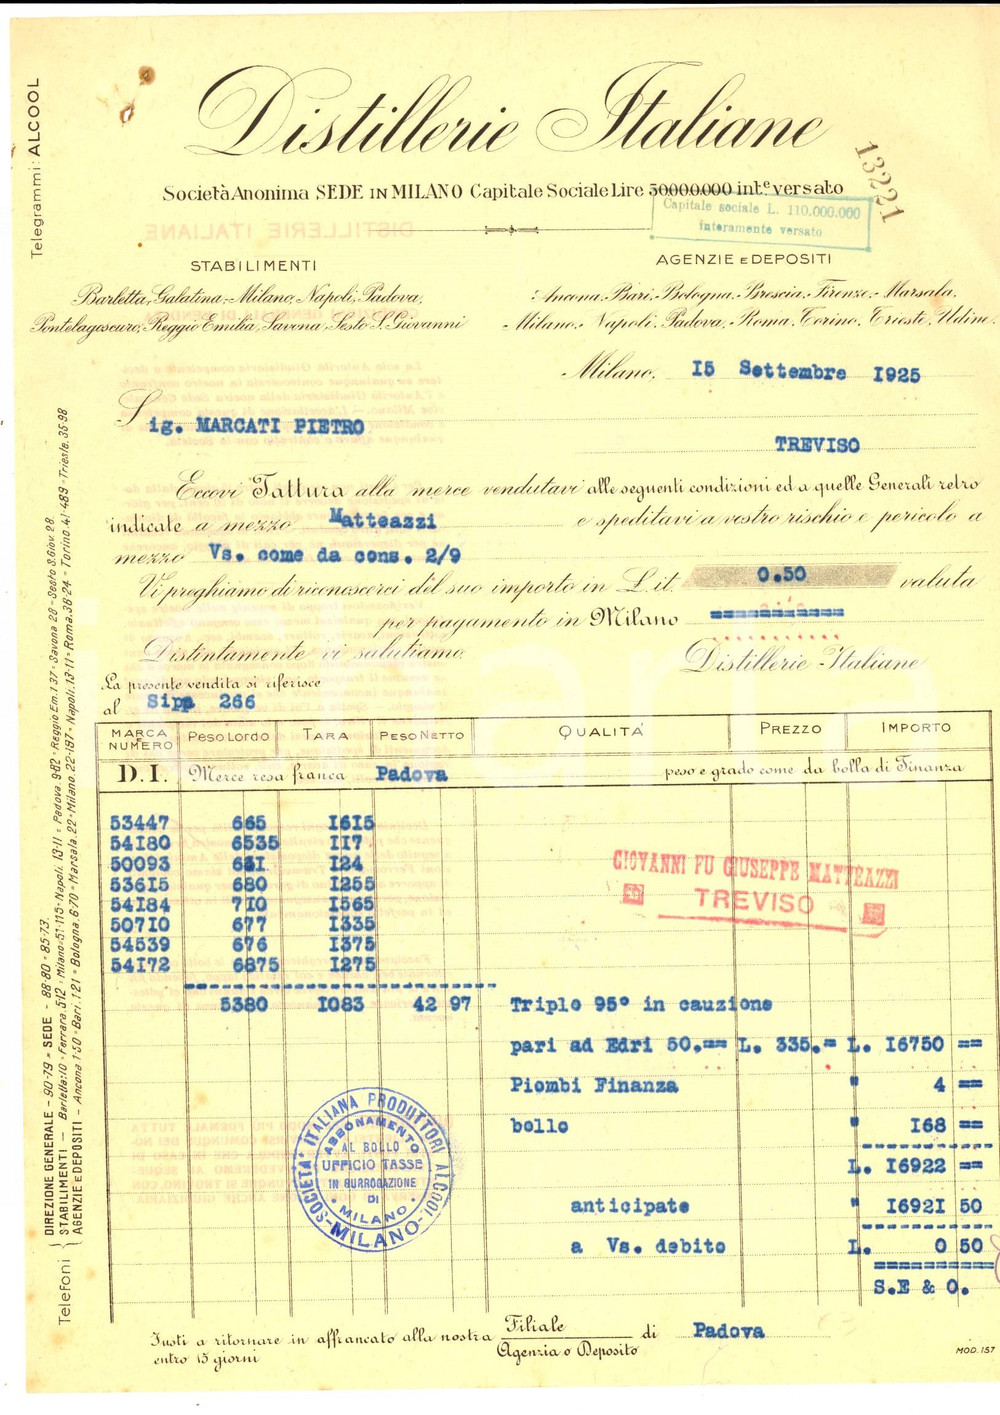 Distillerie Italiane
Telegrammi: ALCOOL
13221
Società Anonima SEDE IN MILANO Capitale Sociale Lire 50.000.000 int.e versato
Capitale sociale L. 110.000.000
interamente versato
STABILIMENTI
AGENZIE E DEPOSITI
Barletta, Galatina, Milano, Napoli, Padova,
Pontelagoscuro, Reggio Emilia, Savona, Sesto S. Giovanni
Ancona, Bari, Bologna, Brescia, Firenze, Marsala,
Milano, Napoli, Padova, Roma, Torino, Trieste, Udine.
Milano, 15 Settembre 1925
Sig. MARCATI PIETRO
TREVISO
Eccovi Fattura alla merce vendutavi alle seguenti condizioni ed a quelle Generali retro
indicate a mezzo Matteazzi e speditavi a vostro rischio e pericolo a
mezzo Vs. come da cons. 2/9
Vi preghiamo di riconoscerci del suo importo in Lit. 0.50 valuta
per pagamento in Milano ============
Distintamente vi salutiamo.
Distillerie Italiane
La presente vendita si riferisce
al Sipa 266
MARCA E NUMERO PESO LORDO TARA PESO NETTO QUALITA' PREZZO IMPORTO
D.I. Merce resa franca Padova peso e grado come da bolla di Finanza
53447 665 1615
54180 6535 117
50093 681 124
53615 680 1255
54184 710 1565
50710 677 1335
54539 676 1375
54172 6875 1275
GIOVANNI FU GIUSEPPE MATTEAZZI
TREVISO
5380 1083 42 97 Triplo 95° in cauzione
pari ad Edri 50.== L. 335.= L. 16750 ==
Piombi Finanza " 4 ==
bollo " 168 ==
L. 16922 ==
anticipate " 16921 50
a Vs. debito L. 0 50
S.E & O.
SOCIETA' ITALIANA PRODUTTORI ALCOOL
MILANO
ABBONAMENTO
AL BOLLO
UFFICIO TASSE
IN SURROGAZIONE
DI
MILANO
Fusti a ritornare in affrancato alla nostra Filiale di Padova
Agenzia o Deposito
entro 15 giorni
MOD. 157
Telefoni
DIREZIONE GENERALE - 90-79 = SEDE - 88-80 = 85-73.
STABILIMENTI - Barletta:10 = Ferrara.512 = Milano:51-115 = Napoli.13-11 = Padova.982 = Reggio Em.137 = Savona 28 = Sesto S.Giov.28.
AGENZIE E DEPOSITI - Ancona 1-50 = Bari.1.21 = Bologna.6-70 = Marsala.22 = Milano.22-197 = Napoli.13-11 = Roma.36-24 = Torino.41-489 = Trieste.35-98